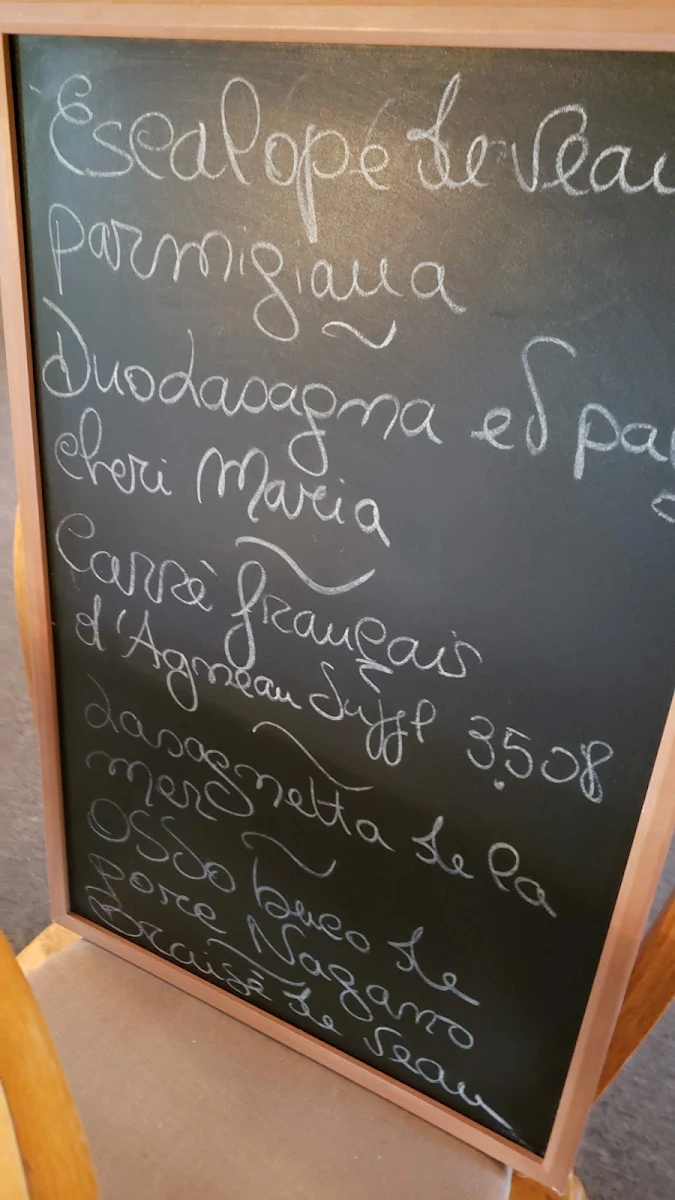 Escalopé de veau
parmigiana
Duo Lasagna et
cheri Maria
Carrè français
d'Agneau Suppl 3.50$
Lasagnetta de la
mer
OSSo buco de
porc Nagano
Braisé de veau